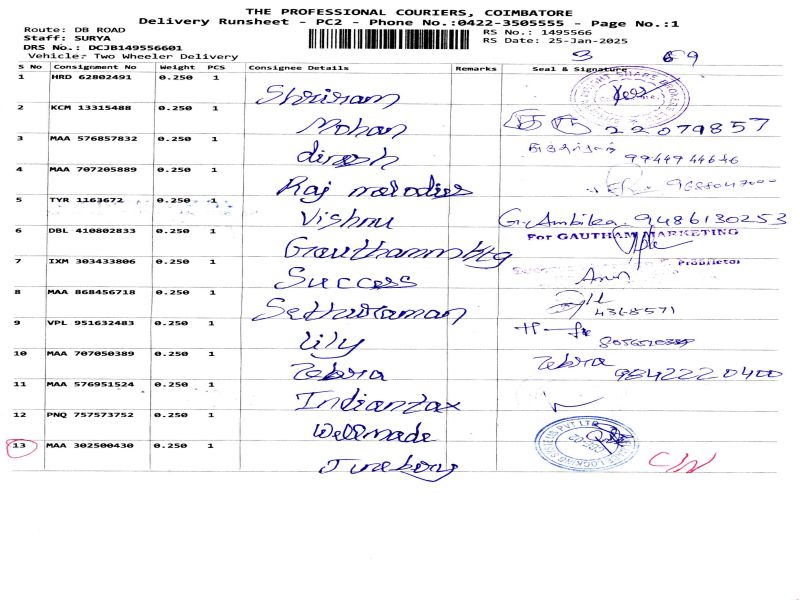 THE PROFESSIONAL COURIERS, COIMBATORE
Delivery Runsheet - PC2 - Phone No.:0422-3505555 - Page No.:1
Route: DB ROAD
Staff: SURYA
DRS No.: DCJB149556601
Vehicle: Two Wheeler Delivery
RS No.: 1495566
RS Date: 25-Jan-2025
S No Consignment No Weight PCS Consignee Details Remarks Seal & Signature
1 HRD 62802491 0.250 1 Shriram
2 KCM 13315488 0.250 1 Mohan 22079857
3 MAA 576857832 0.250 1 dinesh 9944944646
4 MAA 707205889 0.250 1 Raj melodies
5 TYR 1163672 0.250 1 Vishnu G. Ambika. 9486130253
6 DBL 410802833 0.250 1 Gauthamm ktg For GAUTHAM MARKETING
Proprietor
7 IXM 303433806 0.250 1 Success
8 MAA 868456718 0.250 1 Sethuraman 4368571
9 VPL 951632483 0.250 1 Lily
10 MAA 707050389 0.250 1 Zebra Zebra 9842220400
11 MAA 576951524 0.250 1 Indiantax
12 PNQ 757573752 0.250 1 Wellmade
13 MAA 302500430 0.250 1